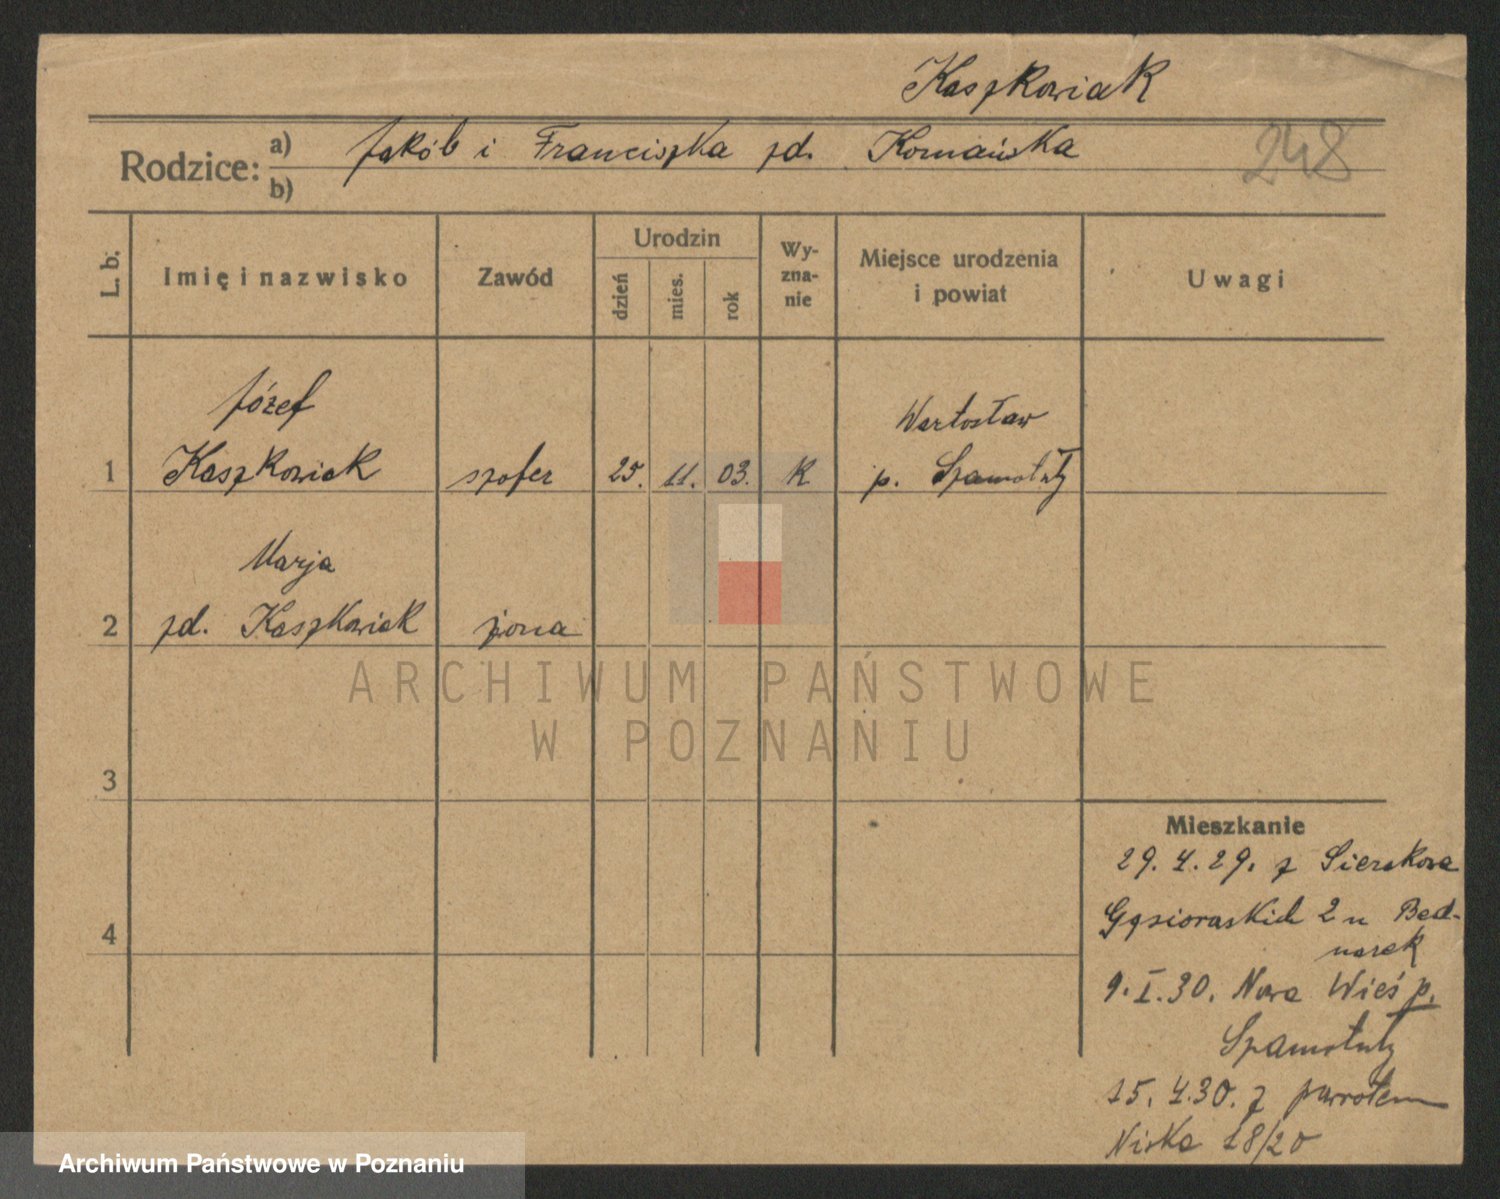 Kaszkowiak
Rodzice: a) Jakób i Franciszka zd. Komańska
b)
248
L. b.
Imię i nazwisko
Zawód
Urodzin
dzień
mies.
rok
Wy-
zna-
nie
Miejsce urodzenia
i powiat
Uwagi
Józef
Wartosław
1 Kaszkowiak szofer 25. 11. 03. K p. Szamotuły
Marja
2 zd. Kaszkowiak żona
3
ARCHIWUM PAŃSTWOWE
W POZNANIU
4
Mieszkanie
29. 4. 29. z Sierakowa
Gąsiorowskich 2 u Bed-
narek
9. I. 30. Nowa Wieś p.
Szamotuły
15. 4. 30. z powrotem
Niska 18/20
Archiwum Państwowe w Poznaniu